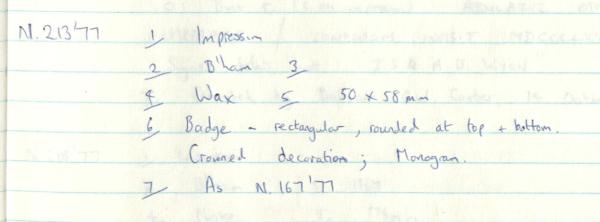 N.213'77 1 Impression
2 B'ham 3
4 Wax 5 50 x 58 mm
6 Badge - rectangular, rounded at top + bottom.
Crowned decoration; Monogram.
7 As N.167'77